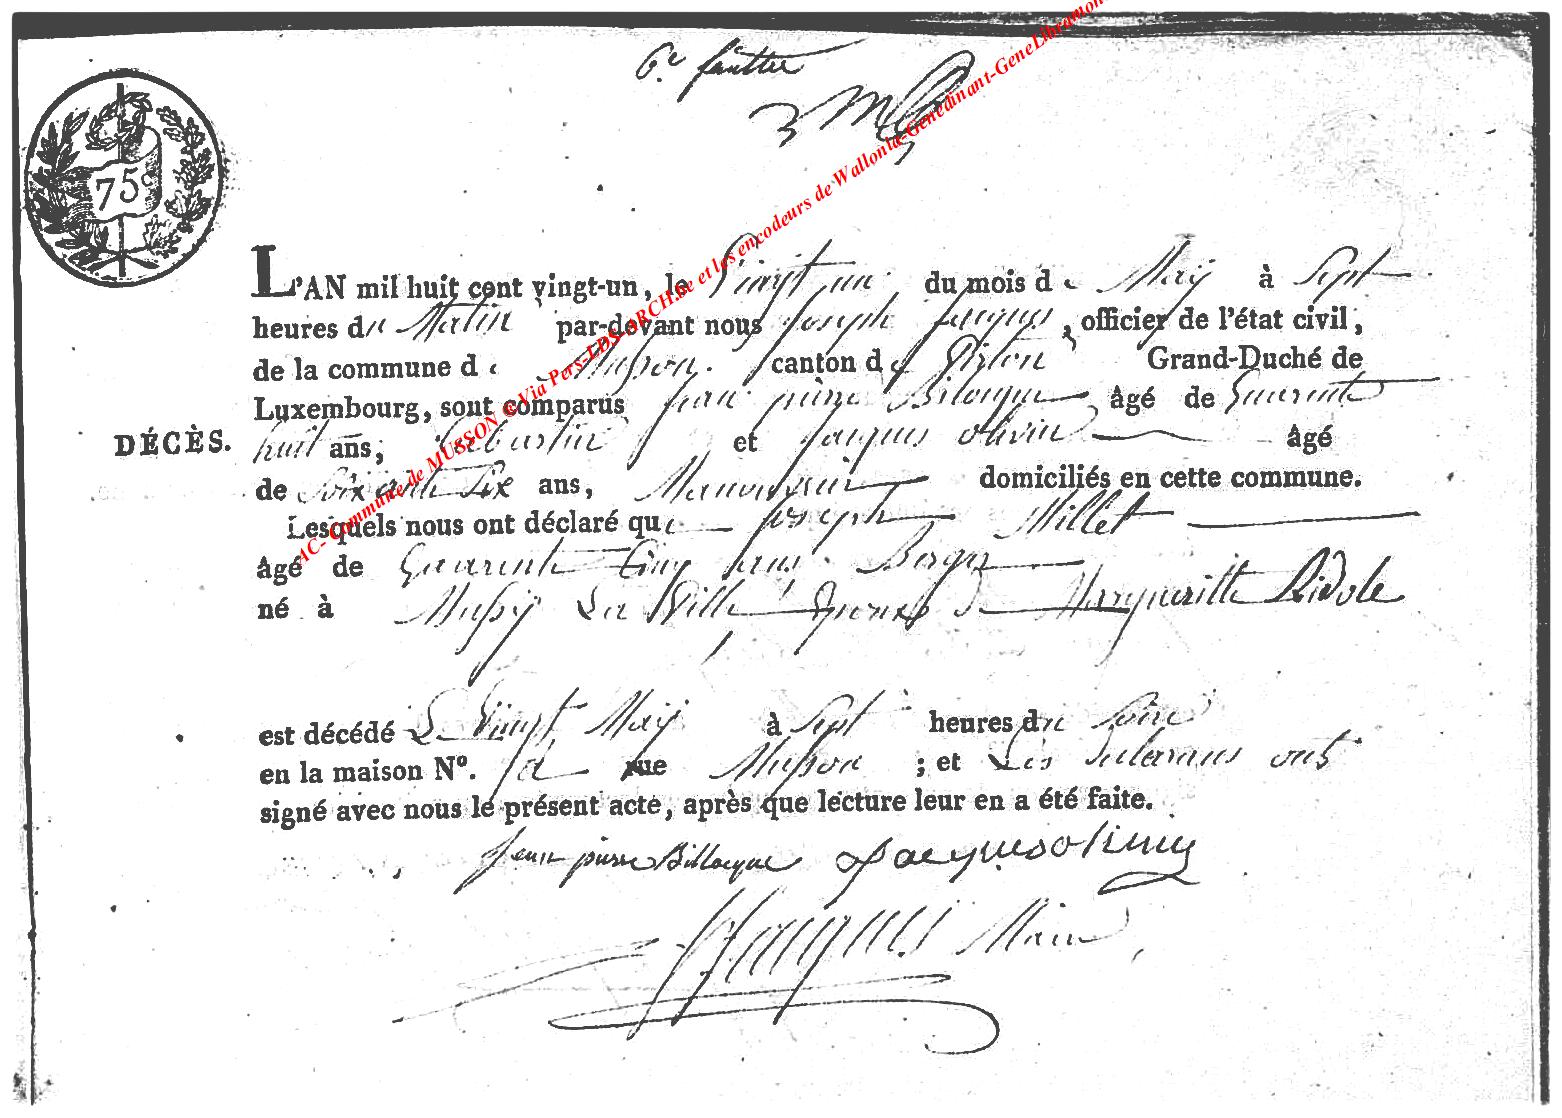 6e feuillet
75c
L'AN mil huit cent vingt-un, le Vingt un du mois de May à Sept
heures du Matin par-devant nous Joseph Jacques, officier de l'état civil,
de la commune de Musson canton de Virton Grand-Duché de
Luxembourg, sont comparus Jean pierre Bilocque âgé de Quarente
DÉCÈS. huit ans, et Jacques olivier âgé
de Soixante Six ans, Manouvrier domiciliés en cette commune.
Lesquels nous ont déclaré que Joseph Millet
âgé de Quarente Cinq ans Berger
né à Mussy La Ville Epoux de Margueritte Ridole
est décédé Le Vingt May à Sept heures du Soire
en la maison N°. à rue Musson ; et Les declarans ont
signé avec nous le présent acte, après que lecture leur en a été faite.
Jean pierre Billocque Jacques olivier
J Jacques Maire
AC- Commune de MUSSON @Via Pers-LDS-ARCH.be et les encodeurs de Wallonia-Genedinant-GeneLibramon